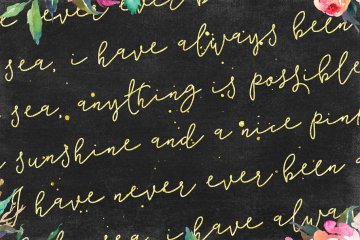 never ever be
sea, i have always been
sea, anything is possible
sunshine and a nice pink
I have never ever been
sea, i have alwa